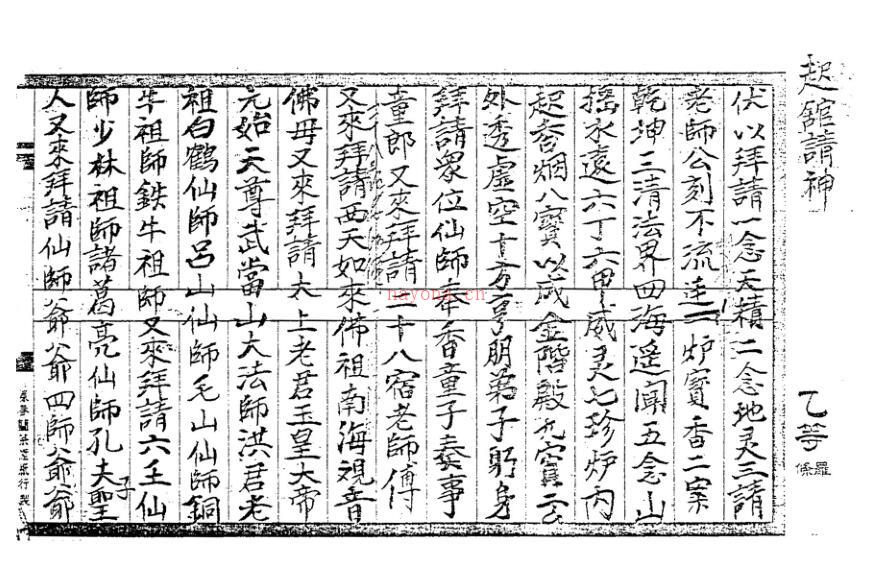 起舘請神
乙等
羅條
伏以拜請一念天積二念地灵三請
老師公刻不流連一炉寳香二案
乾坤三清法界四海遥闻五念山
摇水遠六丁六甲威灵七珍炉内
起香烟八寳以成金階殿九寳云
外透虚空十方亨朋弟子躬身
拜請衆位仙師奉香童子奏事
童郎又來拜請二十八宿老師傅
又來拜請西天如來佛祖南海观音
佛母又來拜請太上老君玉皇大帝
元始天尊武當山大法師洪君老
祖白鶴仙師吕山仙師毛山仙師銅
牛祖師鉄牛祖師又來拜請六壬仙
師少林祖師諸葛亮仙師孔夫聖
子
人又來拜請仙師爺爺四師爺爺
nayona.cn